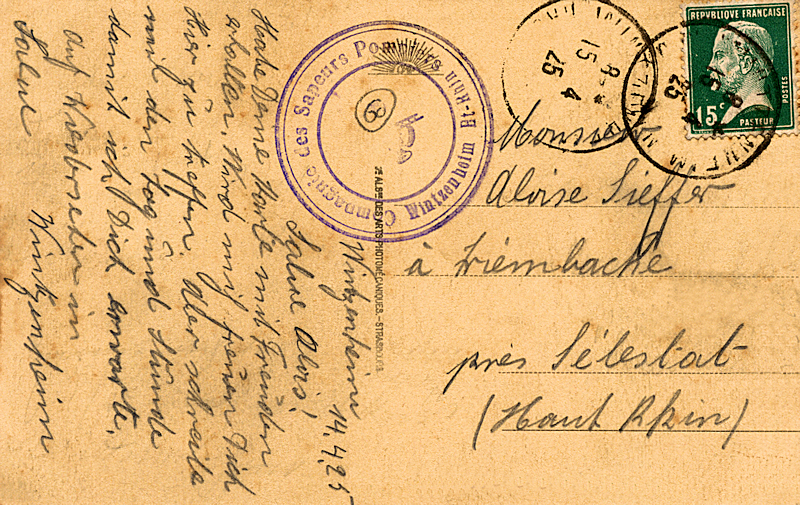 Wintzenheim 14.4.25
Salue Alois!
Habe Deine Karte mit Freuden
erhalten. Wird mich freuen Dich
hier zu treffen. Aber schreibe
mir den Tag und Stunde
damit ich Dich erwarte.
Auf Wiedersehen in
Wintzenheim
Salue
Compagnie des Sapeurs Pompiers
Wintzenheim Ht-Rhin
6
Sté ALSne DES ARTS PHOTOMÉCANIQUES. – STRASBOURG
8
15 4
25
8
15 4
25
REPUBLIQUE FRANÇAISE
15c
POSTES
PASTEUR
Monsieur
Aloise Sieffer
à Triembache
près Sélestat
(Haut Rhin)